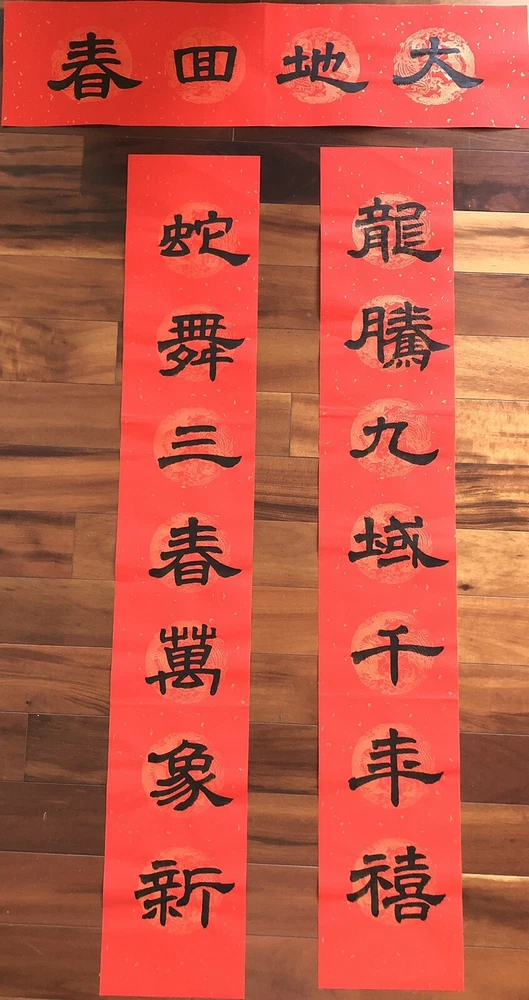 大地回春
龍騰九域千年禧
蛇舞三春萬象新